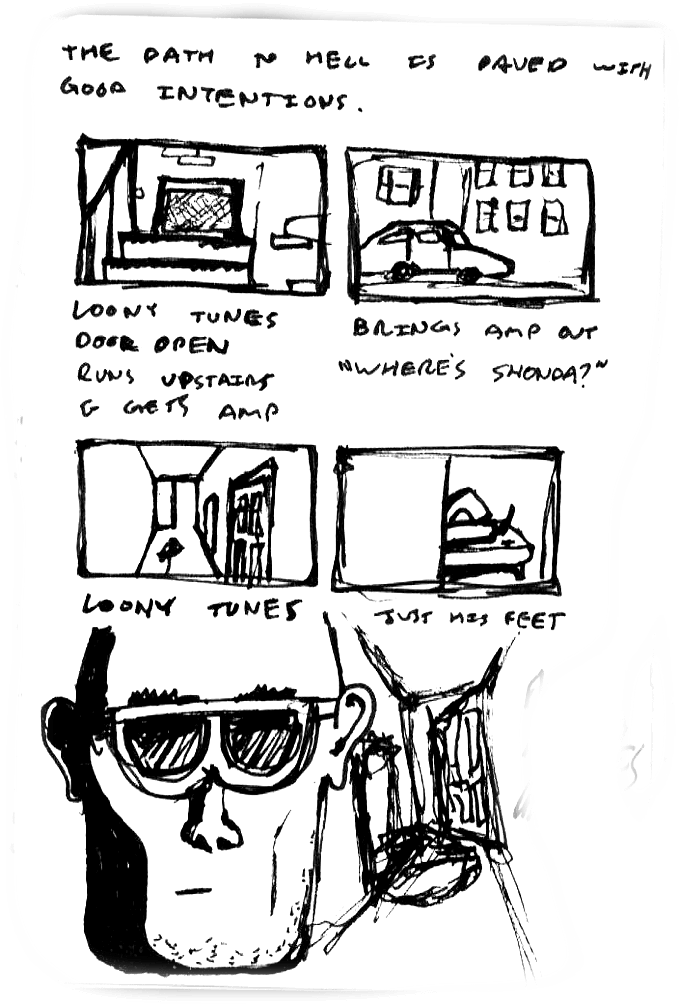 THE PATH TO HELL IS PAVED WITH
GOOD INTENTIONS.
LOONY TUNES
DOOR OPEN
RUNS UPSTAIRS
& GETS AMP
BRINGS AMP OUT
"WHERE'S SHONDA?"
LOONY TUNES
JUST HIS FEET